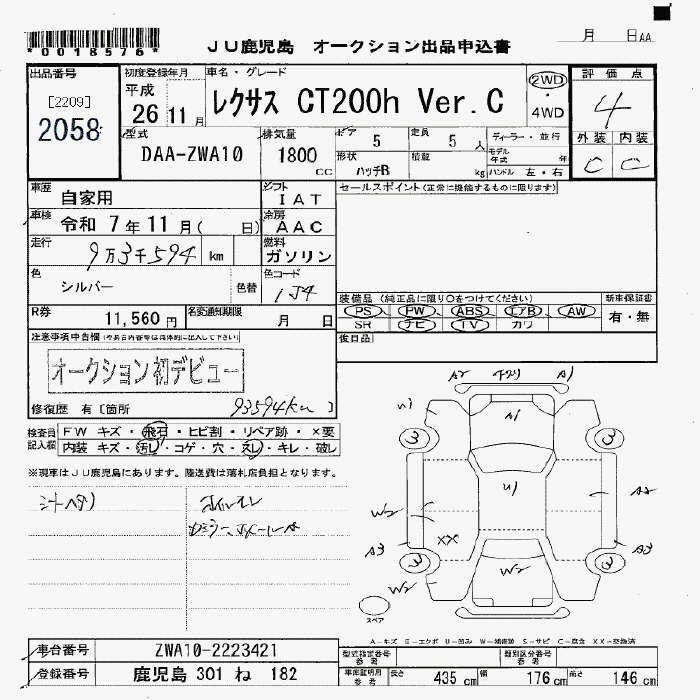 *0018576*
JU鹿児島 オークション出品申込書
月 日AA
出品番号
[2209]
2058
初度登録年月
平成
26 11月
車名・グレード
レクサス CT200h Ver.C
2WD
・
4WD
評価点
4
外装 内装
C C
型式
DAA-ZWA10
排気量
1800 CC
ドア 5
定員 5 人
形状 ハッチB
積載 kg
ディーラー・並行
モデル年式 年
ハンドル 左・右
車歴 自家用
シフト IAT
セールスポイント(正常に機能するものに限ります)
車検 令和 7年 11月( 日)
冷房 AAC
走行 9万3千594 km
燃料 ガソリン
色 シルバー
色替
色コード 1J4
装備品 (純正品に限り○をつけてください)
新車保証書
PS PW ABS エアB AW
SR ナビ TV カワ
有・無
R券 11,560 円
名変通知期限 月 日
後日品
注意事項申告欄
オークション初デビュー
修復歴 有〔箇所 93594km 〕
検査員記入欄
FW キズ・飛石・ヒビ割・リペア跡・×要
内装 キズ・汚レ・コゲ・穴・スレ・キレ・破レ
※現車はJU鹿児島にあります。陸送費は落札店負担となります。
シートヘタリ
A2 A1
U1 A1
3 3
U1
W2 A2
XX
A3 A3
3 3
W2 W2
スペア
A-キズ E-エクボ U-凹み W-補修跡 S-サビ C-腐食 XX-交換済
車台番号 ZWA10-2223421
登録番号 鹿児島 301 ね 182
型式指定番号 参考
類別区分番号 参考
車庫証明用 参考
長さ 435 cm 幅 176 cm 高さ 146 cm